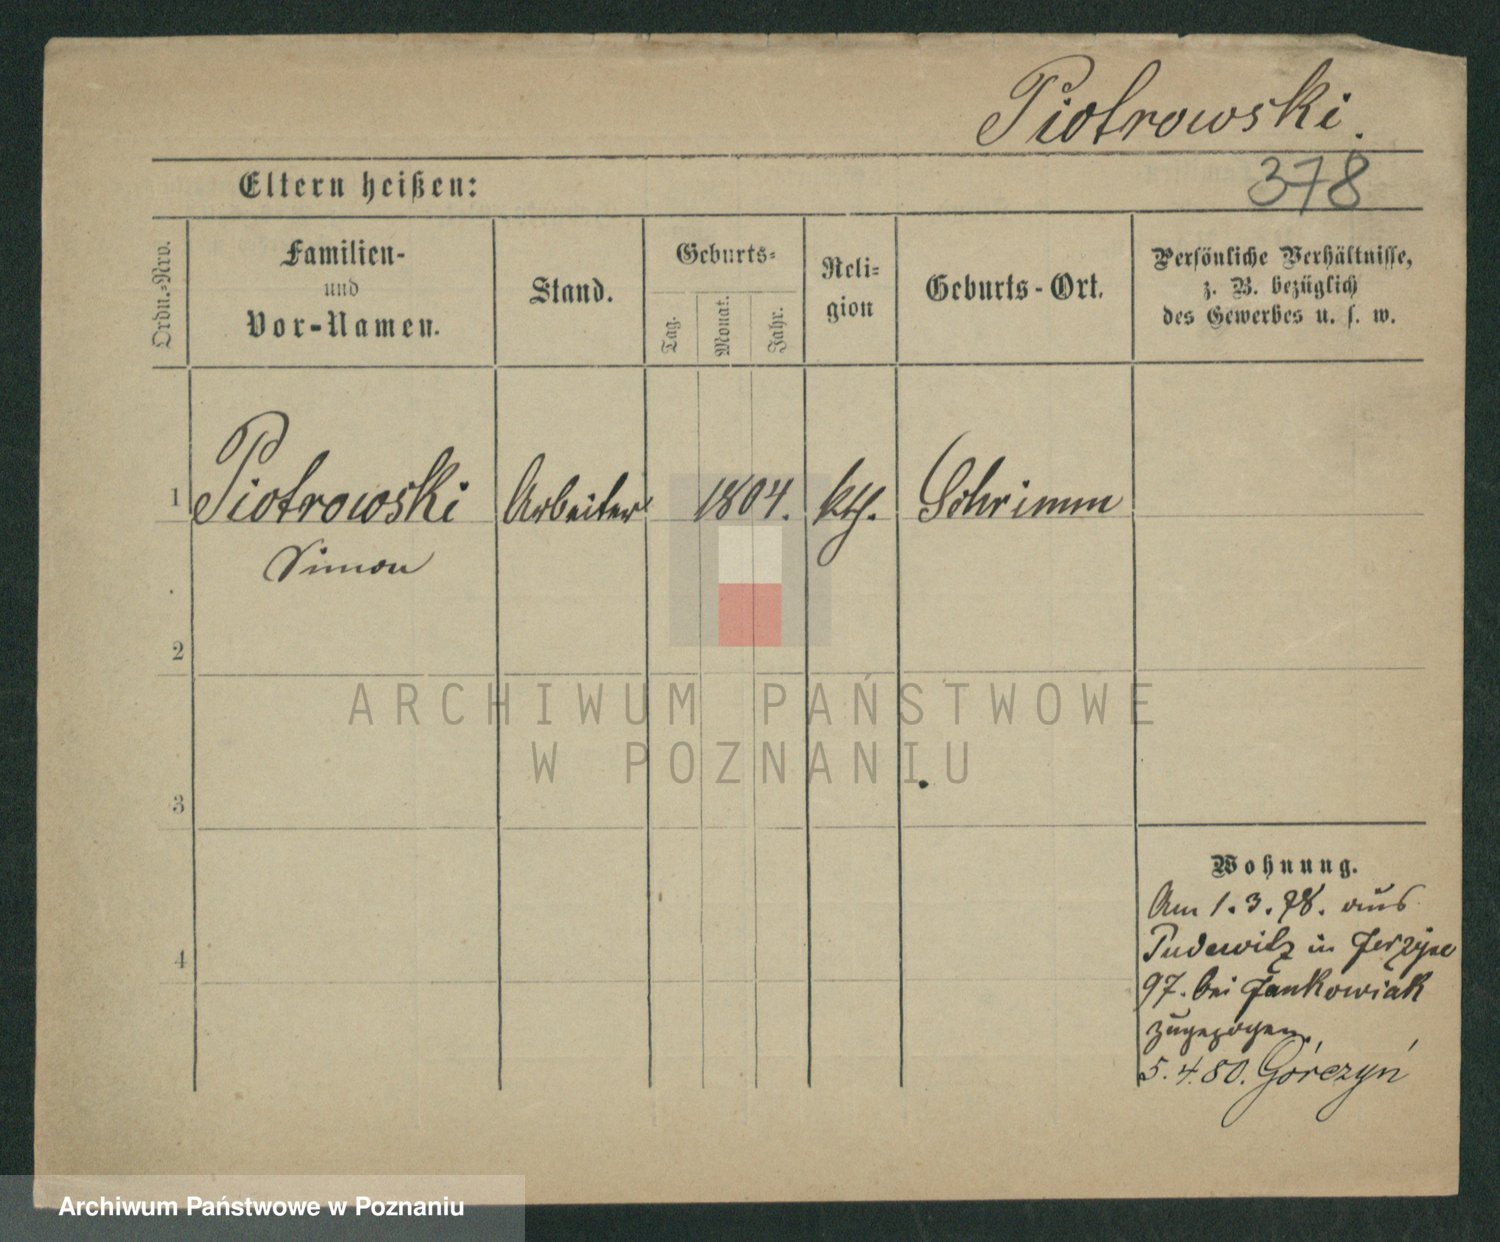 Piotrowski.
378
Eltern heißen:
Ordn.-Nro.
Familien-
und
Vor-Namen.
Stand.
Geburts-
Tag.
Monat.
Jahr.
Reli-
gion
Geburts-Ort.
Persönliche Verhältnisse,
z. B. bezüglich
des Gewerbes u. s. w.
1 Piotrowski Arbeiter 1804. kth. Schrimm
Simon
2
3
4
Wohnung.
Am 1.3.78. aus
Pudewitz in Jerzyce
97. bei Jankowiak
zugezogen.
5.4.80. Górczyń
ARCHIWUM PAŃSTWOWE
W POZNANIU
Archiwum Państwowe w Poznaniu